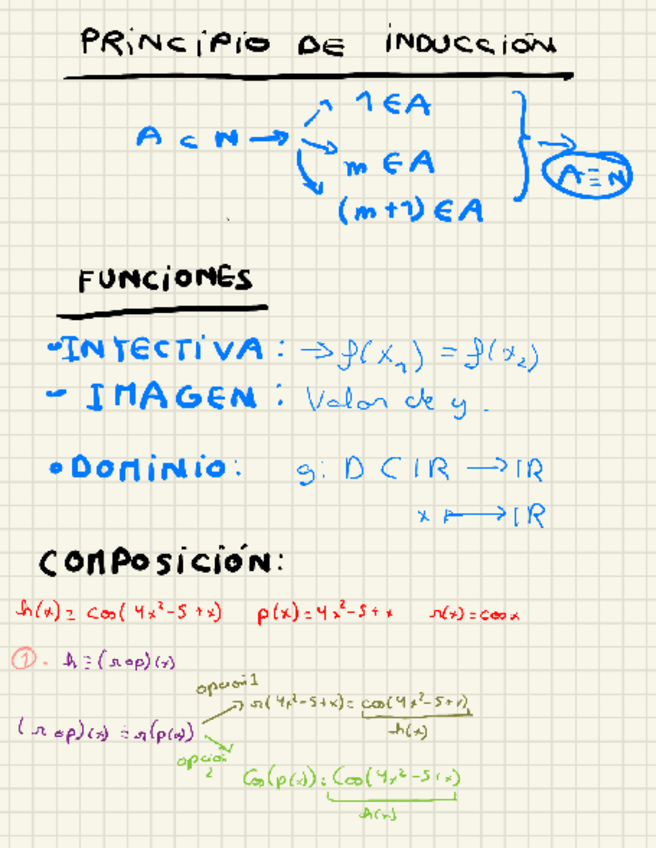 PRINCIPIO DE INDUCCIÓN
A ⊂ N → 1 ∈ A
m ∈ A
(m+1) ∈ A
→ A ≡ N
FUNCIONES
- INYECTIVA: → f(x₁) = f(x₂)
- IMAGEN: Valor de y.
• DOMINIO: g: D ⊂ IR → IR
x ↦ IR
COMPOSICIÓN:
h(x) = cos(4x²-5+x) p(x)=4x²-5+x r(x)=cosx
①. h ≡ (r∘p)(x)
opción 1
r(4x²-5+x) = cos(4x²-5+x)
h(x)
(r∘p)(x) ≡ r(p(x))
opción 2
Cos(p(x)) = Cos(4x²-5+x)
h(x)